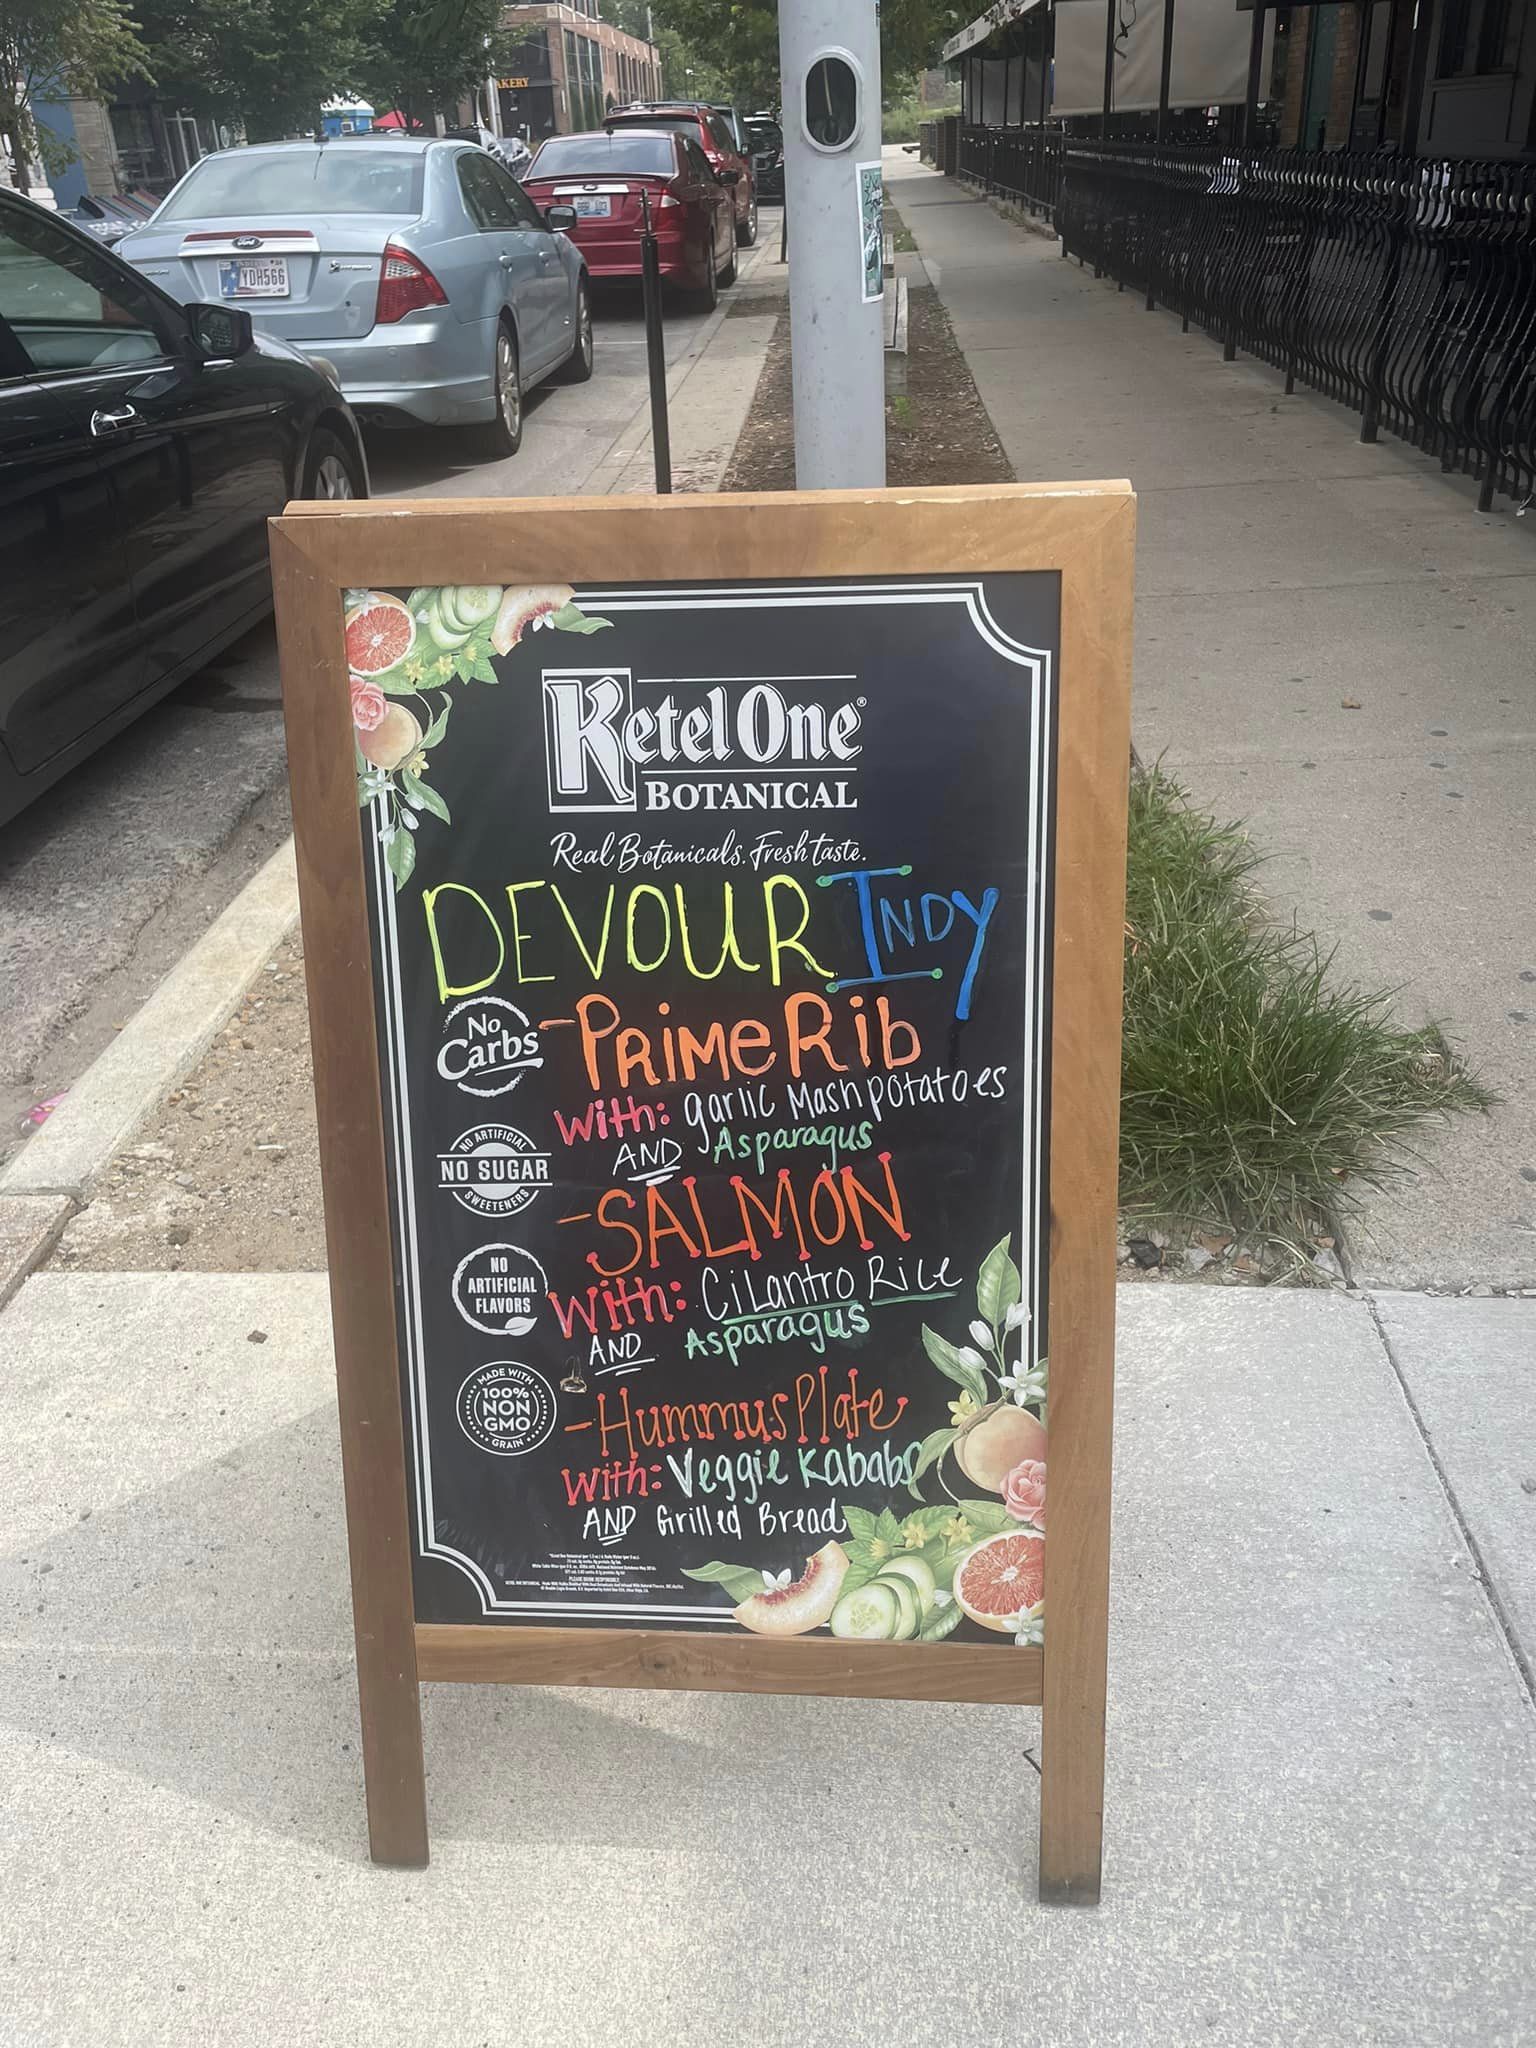 AKERY
Ford
YDH566
Ketel One®
BOTANICAL
Real Botanicals. Fresh taste.
DEVOUR INDY
No Carbs
-PRiMe Rib
With: garlic Mashpotatoes
AND Asparagus
NO ARTIFICIAL
NO SUGAR
SWEETENERS
-SALMON
With: CiLantro Rice
AND Asparagus
NO
ARTIFICIAL
FLAVORS
MADE WITH
100%
NON
GMO
GRAIN
-Hummus Plate
With: Veggie Kababs
AND Grilled Bread
PLEASE DRINK RESPONSIBLY.